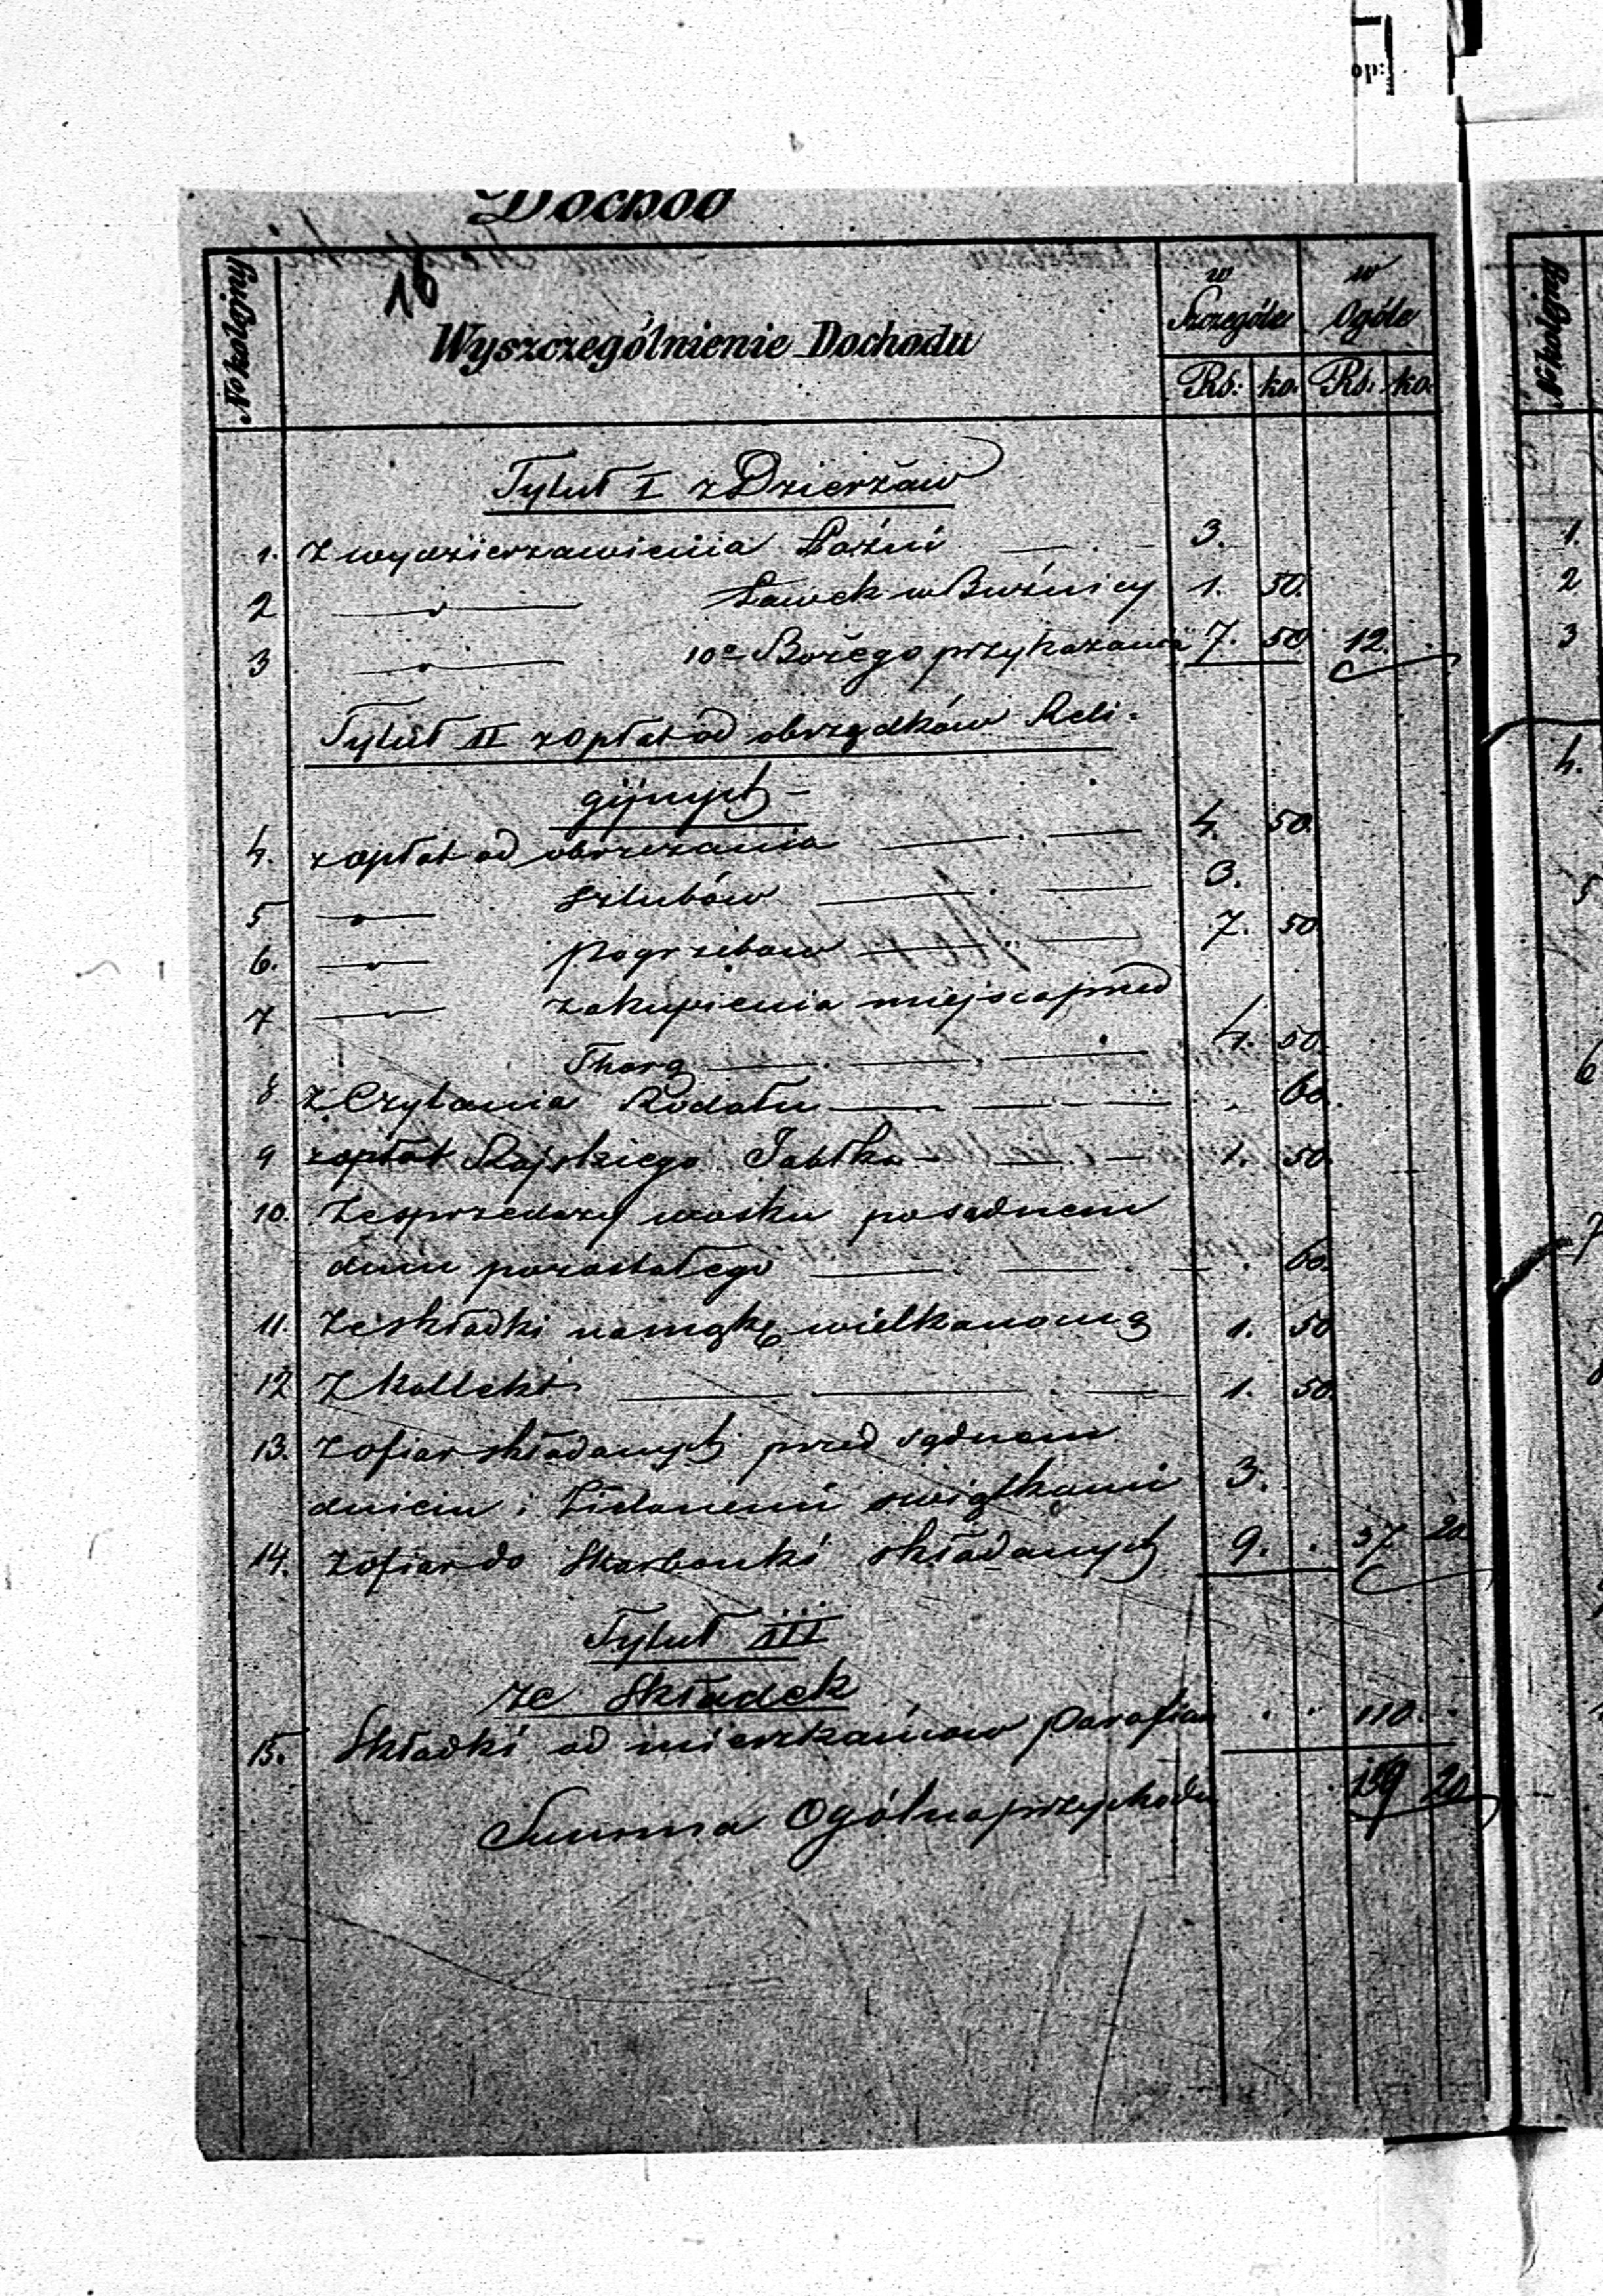 Dochód
16
No kolejny
Wyszczególnienie Dochodu
w Szczególe
w Ogóle
Rs. ko. Rs. ko.
Tytuł I z Dzierżaw
1. Z wydzierzawienia Łaźni — . — 3.
2 — „ — Ławek w Bużnicy 1. 50.
3 — „ — 10e Bożego przykazania 7. 50 12. .
Tytuł II z Opłat od obrządków Reli-
gijnych –
4. z opłat od obrzezania — . — 4. 50.
5 — „ — szlubów — . — 3.
6. — „ — pogrzebow — . — 7. 50
7 — „ — zakupienia miejsca przed
Thorą — . — . — 4. 50.
8 Z Czytania Rodału — — — . 60.
9 z opłat Rajskiego Jabłka — — . — 1. 50.
10. Ze sprzedaży wosku po sądnem
dniu pozostałego — . — . — . 60.
11. Ze składki na mąkę wielkanocną 1. 50
12 Z kollekt — — . — 1. 50.
13. Z ofiar składanych przed sądnem
dniem i Zielonemi swiątkami 3.
14. Z ofiar do Skarbonki składanych 9. . 37 20
Tytuł III
ze Składek
15. Składki od mieszkańcow parafian . . 110. .
Summa Ogólna przychodu . 159 20
No kolejny
1.
2
3
4.
5
6
7